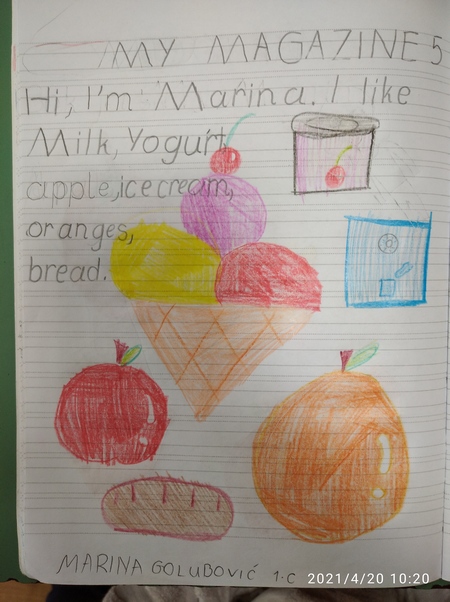 MY MAGAZINE 5
Hi, I'm Marina. I like
Milk, Yogurt,
apple, ice cream,
oranges,
bread.
MARINA GOLUBOVIĆ 1-C 2021/4/20 10:20